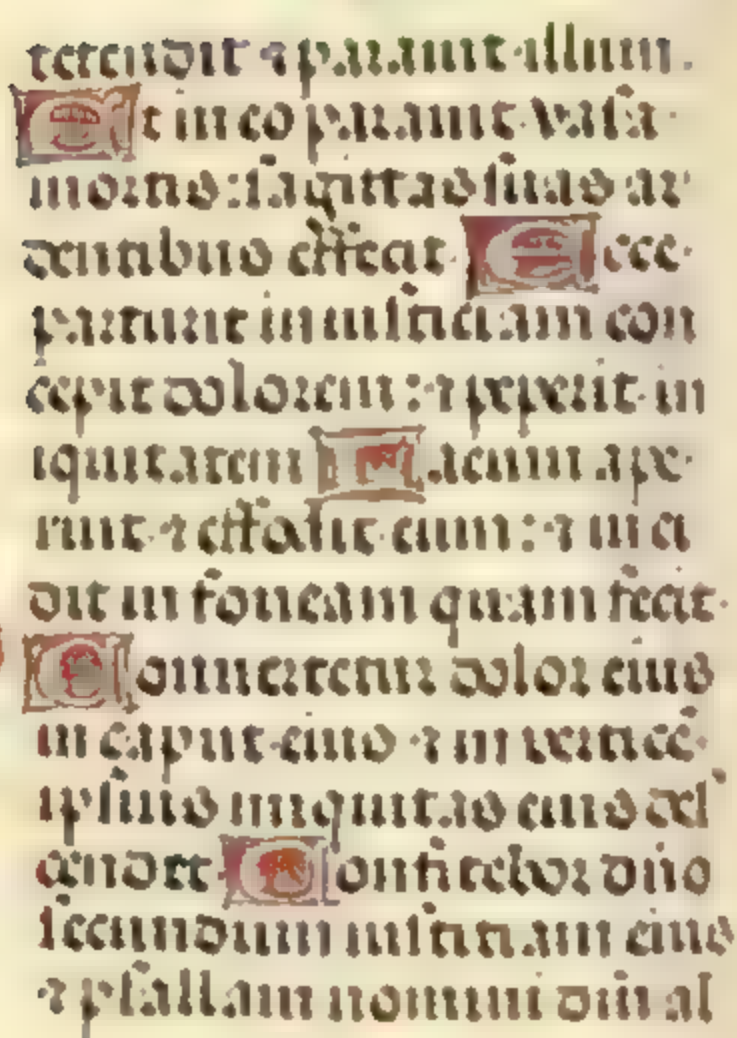 tetendit ⁊ parauit illum.
Et in eo parauit vasa
mortis: sagittas suas ar
dentibus effecit. Ecce
parturit iniusticiam con
cepit dolorem: ⁊ peperit in
iquitatem Lacum ape
ruit ⁊ effodit eum: ⁊ inci
dit in foueam quam fecit.
Conuertetur dolor eius
in caput eius ⁊ in verticē
ipsius iniquitas eius des
cendet Confitebor dño
secundum iustitiam eius
⁊ psallam nomini dñi al